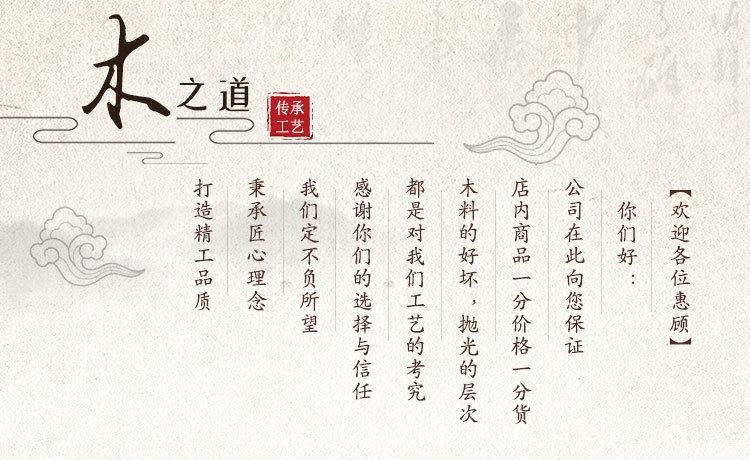 木之道
传承
工艺
【欢迎各位惠顾】
你们好：
公司在此向您保证
店内商品一分价格一分货
木料的好坏，抛光的层次
都是对我们工艺的考究
感谢你们的选择与信任
我们定不负所望
秉承匠心理念
打造精工品质